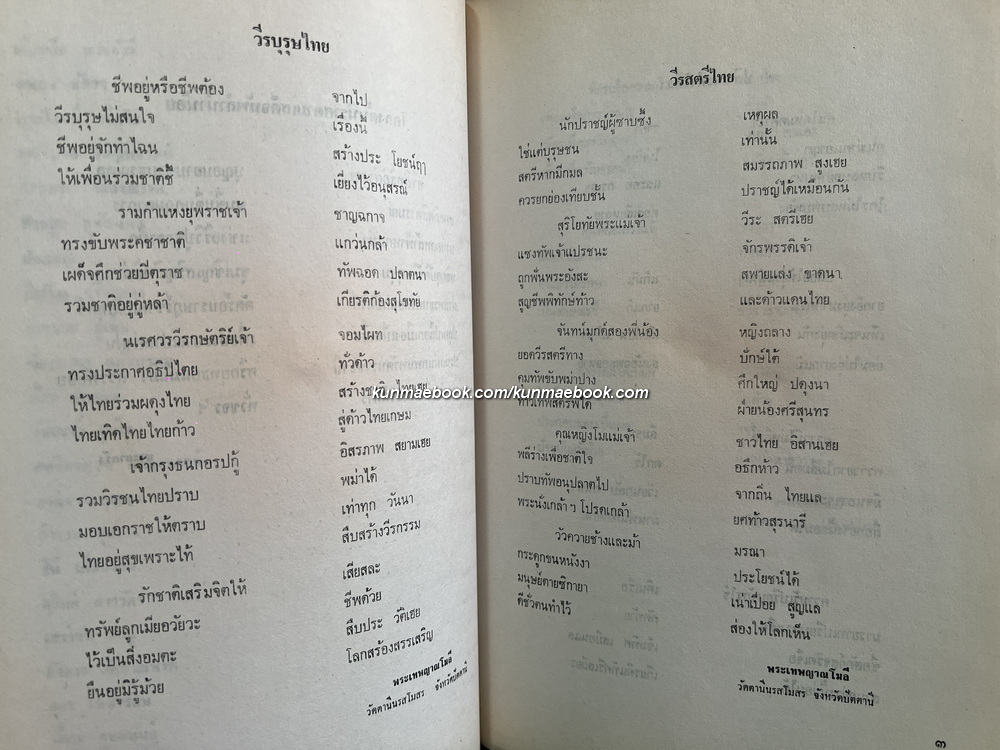 วีรบุรุษไทย
ชีพอยู่หรือชีพต้อง จากไป
วีรบุรุษไม่สนใจ เรื่องนี้
ชีพอยู่จักทำไฉน สร้างประ โยชน์ฤๅ
ให้เพื่อนร่วมชาติชี้ เยี่ยงไว้อนุสรณ์
รามกำแหงยุพราชเจ้า ชาญฉกาจ
ทรงขับพระคชาชาติ แกว่นกล้า
เผด็จศึกช่วยบีตุราช ทัพฉอด ปลาตนา
รวมชาติอยู่คู่หล้า เกียรติก้องสุโขทัย
นเรศวรวีรกษัตริย์เจ้า จอมไผท
ทรงประกาศอธิปไตย ทั่วด้าว
ให้ไทยร่วมผดุงไทย สร้างชาติ ไทยเฮย
ไทยเทิดไทยไทยก้าว สู่ด้าวไทยเกษม
เจ้ากรุงธนกอรปกู้ อิสรภาพ สยามเฮย
รวมวิรชนไทยปราบ พม่าได้
มอบเอกราชให้ตราบ เท่าทุก วันนา
ไทยอยู่สุขเพราะไท้ สืบสร้างวีรกรรม
รักชาติเสริมจิตให้ เสียสละ
ทรัพย์ลูกเมียอวัยวะ ชีพด้วย
ไว้เป็นสิ่งอมตะ สืบประ วัติเฮย
ยืนอยู่มิรู้ม้วย โลกสร้องสรรเสริญ
พระเทพญาณโมลี
วัดตานีนรสโมสร จังหวัดปัตตานี
วีรสตรีไทย
นักปราชญ์ผู้ซาบซึ้ง เหตุผล
ใช่แต่บุรุษชน เท่านั้น
สตรีหากมีกมล สมรรถภาพ สูงเฮย
ควรยกย่องเทียบชั้น ปราชญ์ได้เหมือนกัน
สุริโยทัยพระแม่เจ้า วีระ สตรีเฮย
แซงทัพเจ้าแปรชนะ จักรพรรดิเจ้า
ถูกฟันพระอังสะ สพายแล่ง ขาดนา
สูญชีพพิทักษ์ท้าว และด้าวแดนไทย
จันทน์มุกด์สองพี่น้อง หญิงถลาง
ยอดวีรสตรีทาง ปักษ์ใต้
คุมทัพขับพม่าปาง ศึกใหญ่ ปดุงนา
ท้าวเทพสตรีพี่ได้ ฝ่ายน้องศรีสุนทร
คุณหญิงโมแม่เจ้า ชาวไทย อิสานเฮย
พลีร่างเพื่อชาติใจ อธึกห้าว
ปราบทัพอนุปลาตไป จากถิ่น ไทยแล
พระนั่งเกล้า ฯ โปรดเกล้า ยศท้าวสุรนารี
วัวควายช้างและม้า มรณา
กระดูกขนหนังงา ประโยชน์ได้
มนุษย์ตายซิกายา เน่าเปื่อย สูญแล
ดีชั่วตนทำไว้ ส่องให้โลกเห็น
พระเทพญาณโมลี
วัดตานีนรสโมสร จังหวัดปัตตานี
๓
kunmaebook.com/kunmaebook.com